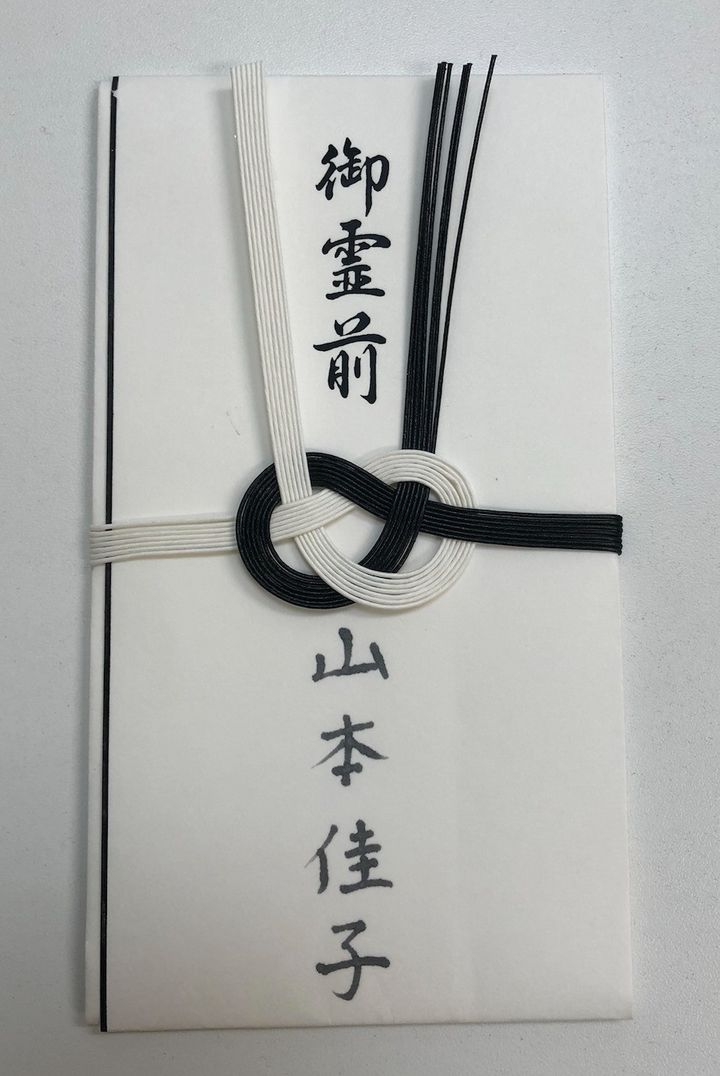 御霊前
山本佳子